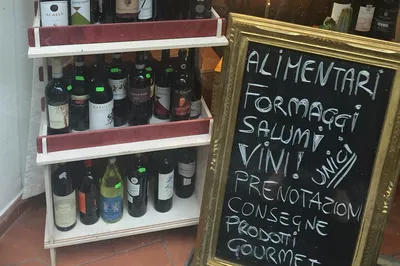 ALIMENTARI
FORMAGGI
SALUMI
VINI! UNICI
PRENOTAZIONI
CONSEGNE
PRODOTTI
GOURMET